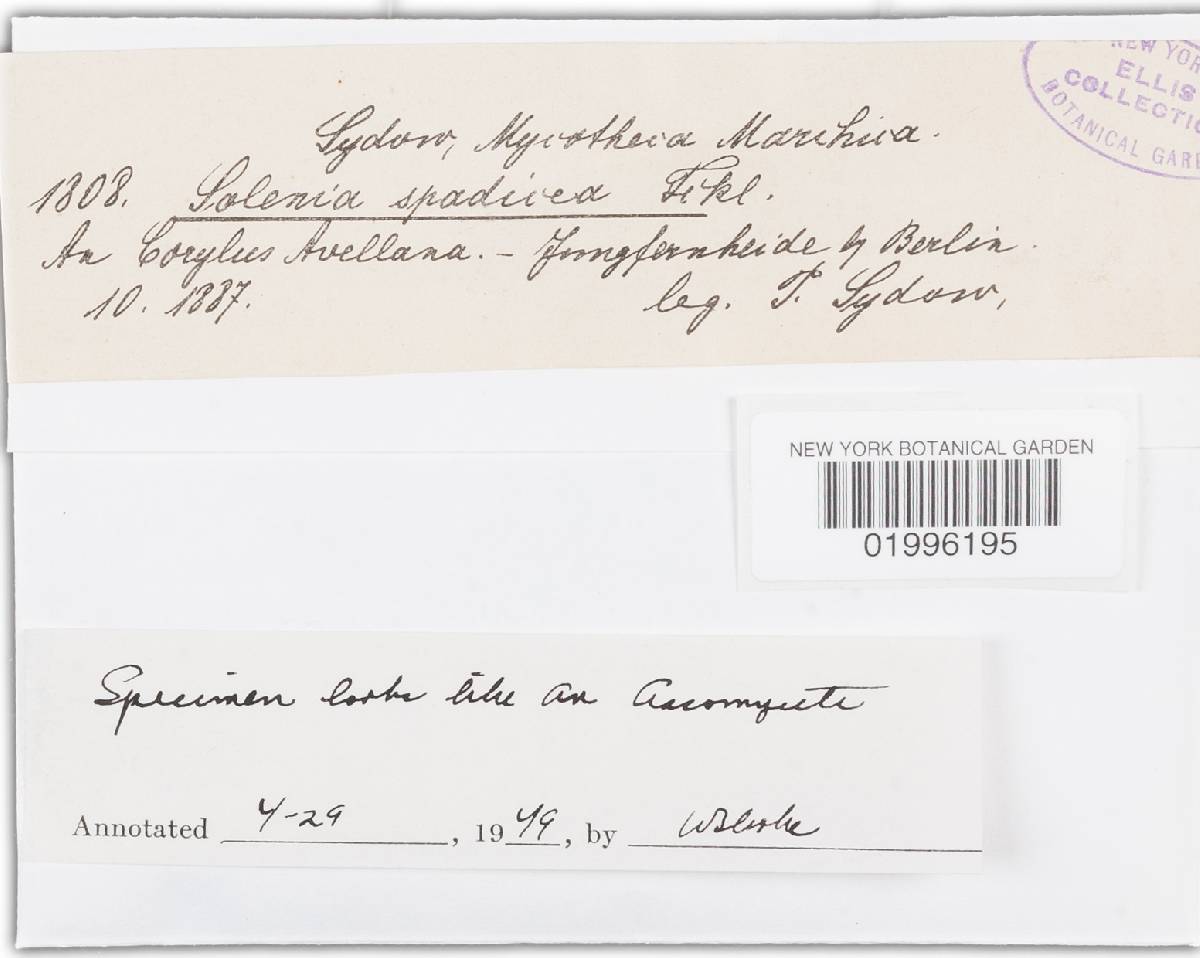 NEW YOR
ELLIS
COLLECTIO
BOTANICAL GARDE
Sydow, Mycotheca Marchica.
1808. Solenia spadicea Fckl.
An Corylus Avellana. – Jungfernheide b/ Berlin.
10. 1887. leg. P. Sydow,
NEW YORK BOTANICAL GARDEN
01996195
Specimen looks like an Ascomycete
Annotated 4-29, 1949, by WBCooke